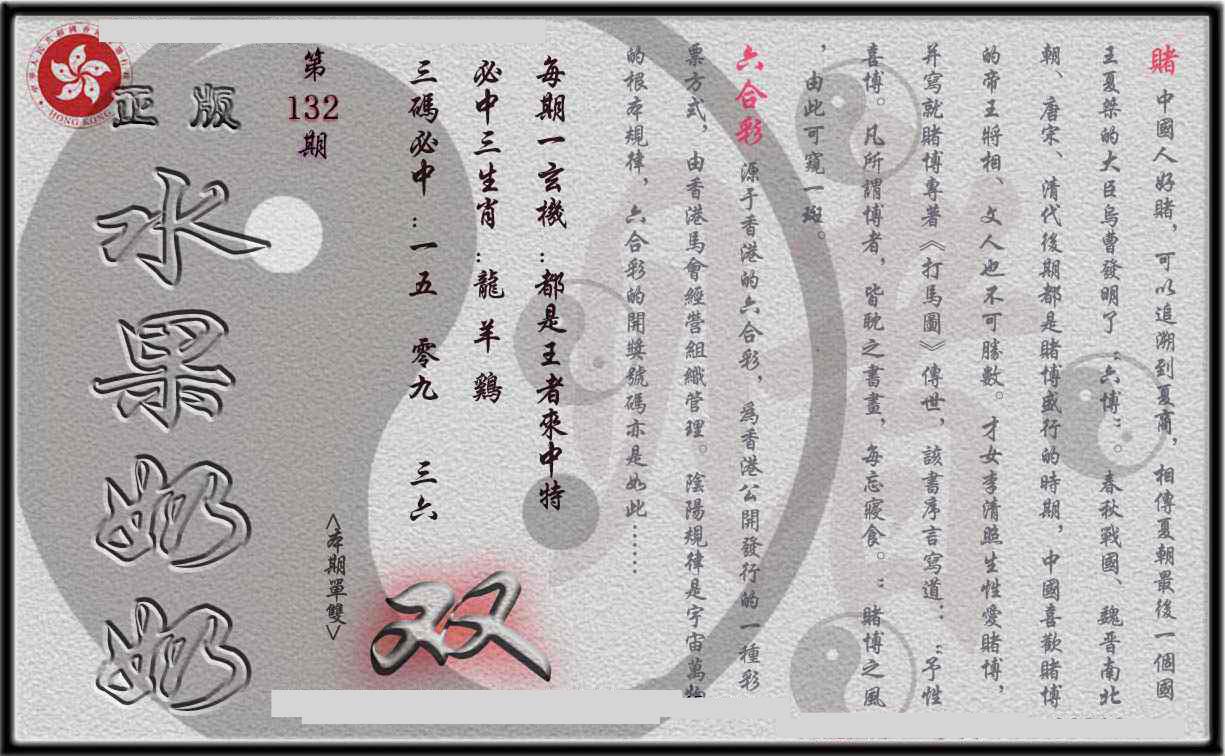 賭 中國人好賭，可以追溯到夏商，相傳夏朝最後一個國
王夏桀的大臣烏曹發明了“六博”。春秋戰國、魏晋南北
朝、唐宋、清代後期都是賭博盛行的時期，中國喜歡賭博
的帝王將相、文人也不可勝數。才女李清照生性愛賭博，
并寫就賭博專著《打馬圖》傳世，該書序言寫道：“予性
喜博。凡所謂博者，皆耽之書畫，每忘寢食。”賭博之風
，由此可窺一斑。
六合彩 源于香港的六合彩，爲香港公開發行的一種彩
票方式，由香港馬會經營組織管理。陰陽規律是宇宙萬物
的根本規律，六合彩的開獎號碼亦是如此……
每期一玄機：都是王者來中特
必中三生肖：龍 羊 鷄
三碼必中：一五 零九 三六
双
<本期單雙>
第
132
期
正版
水果奶奶
HONG KONG